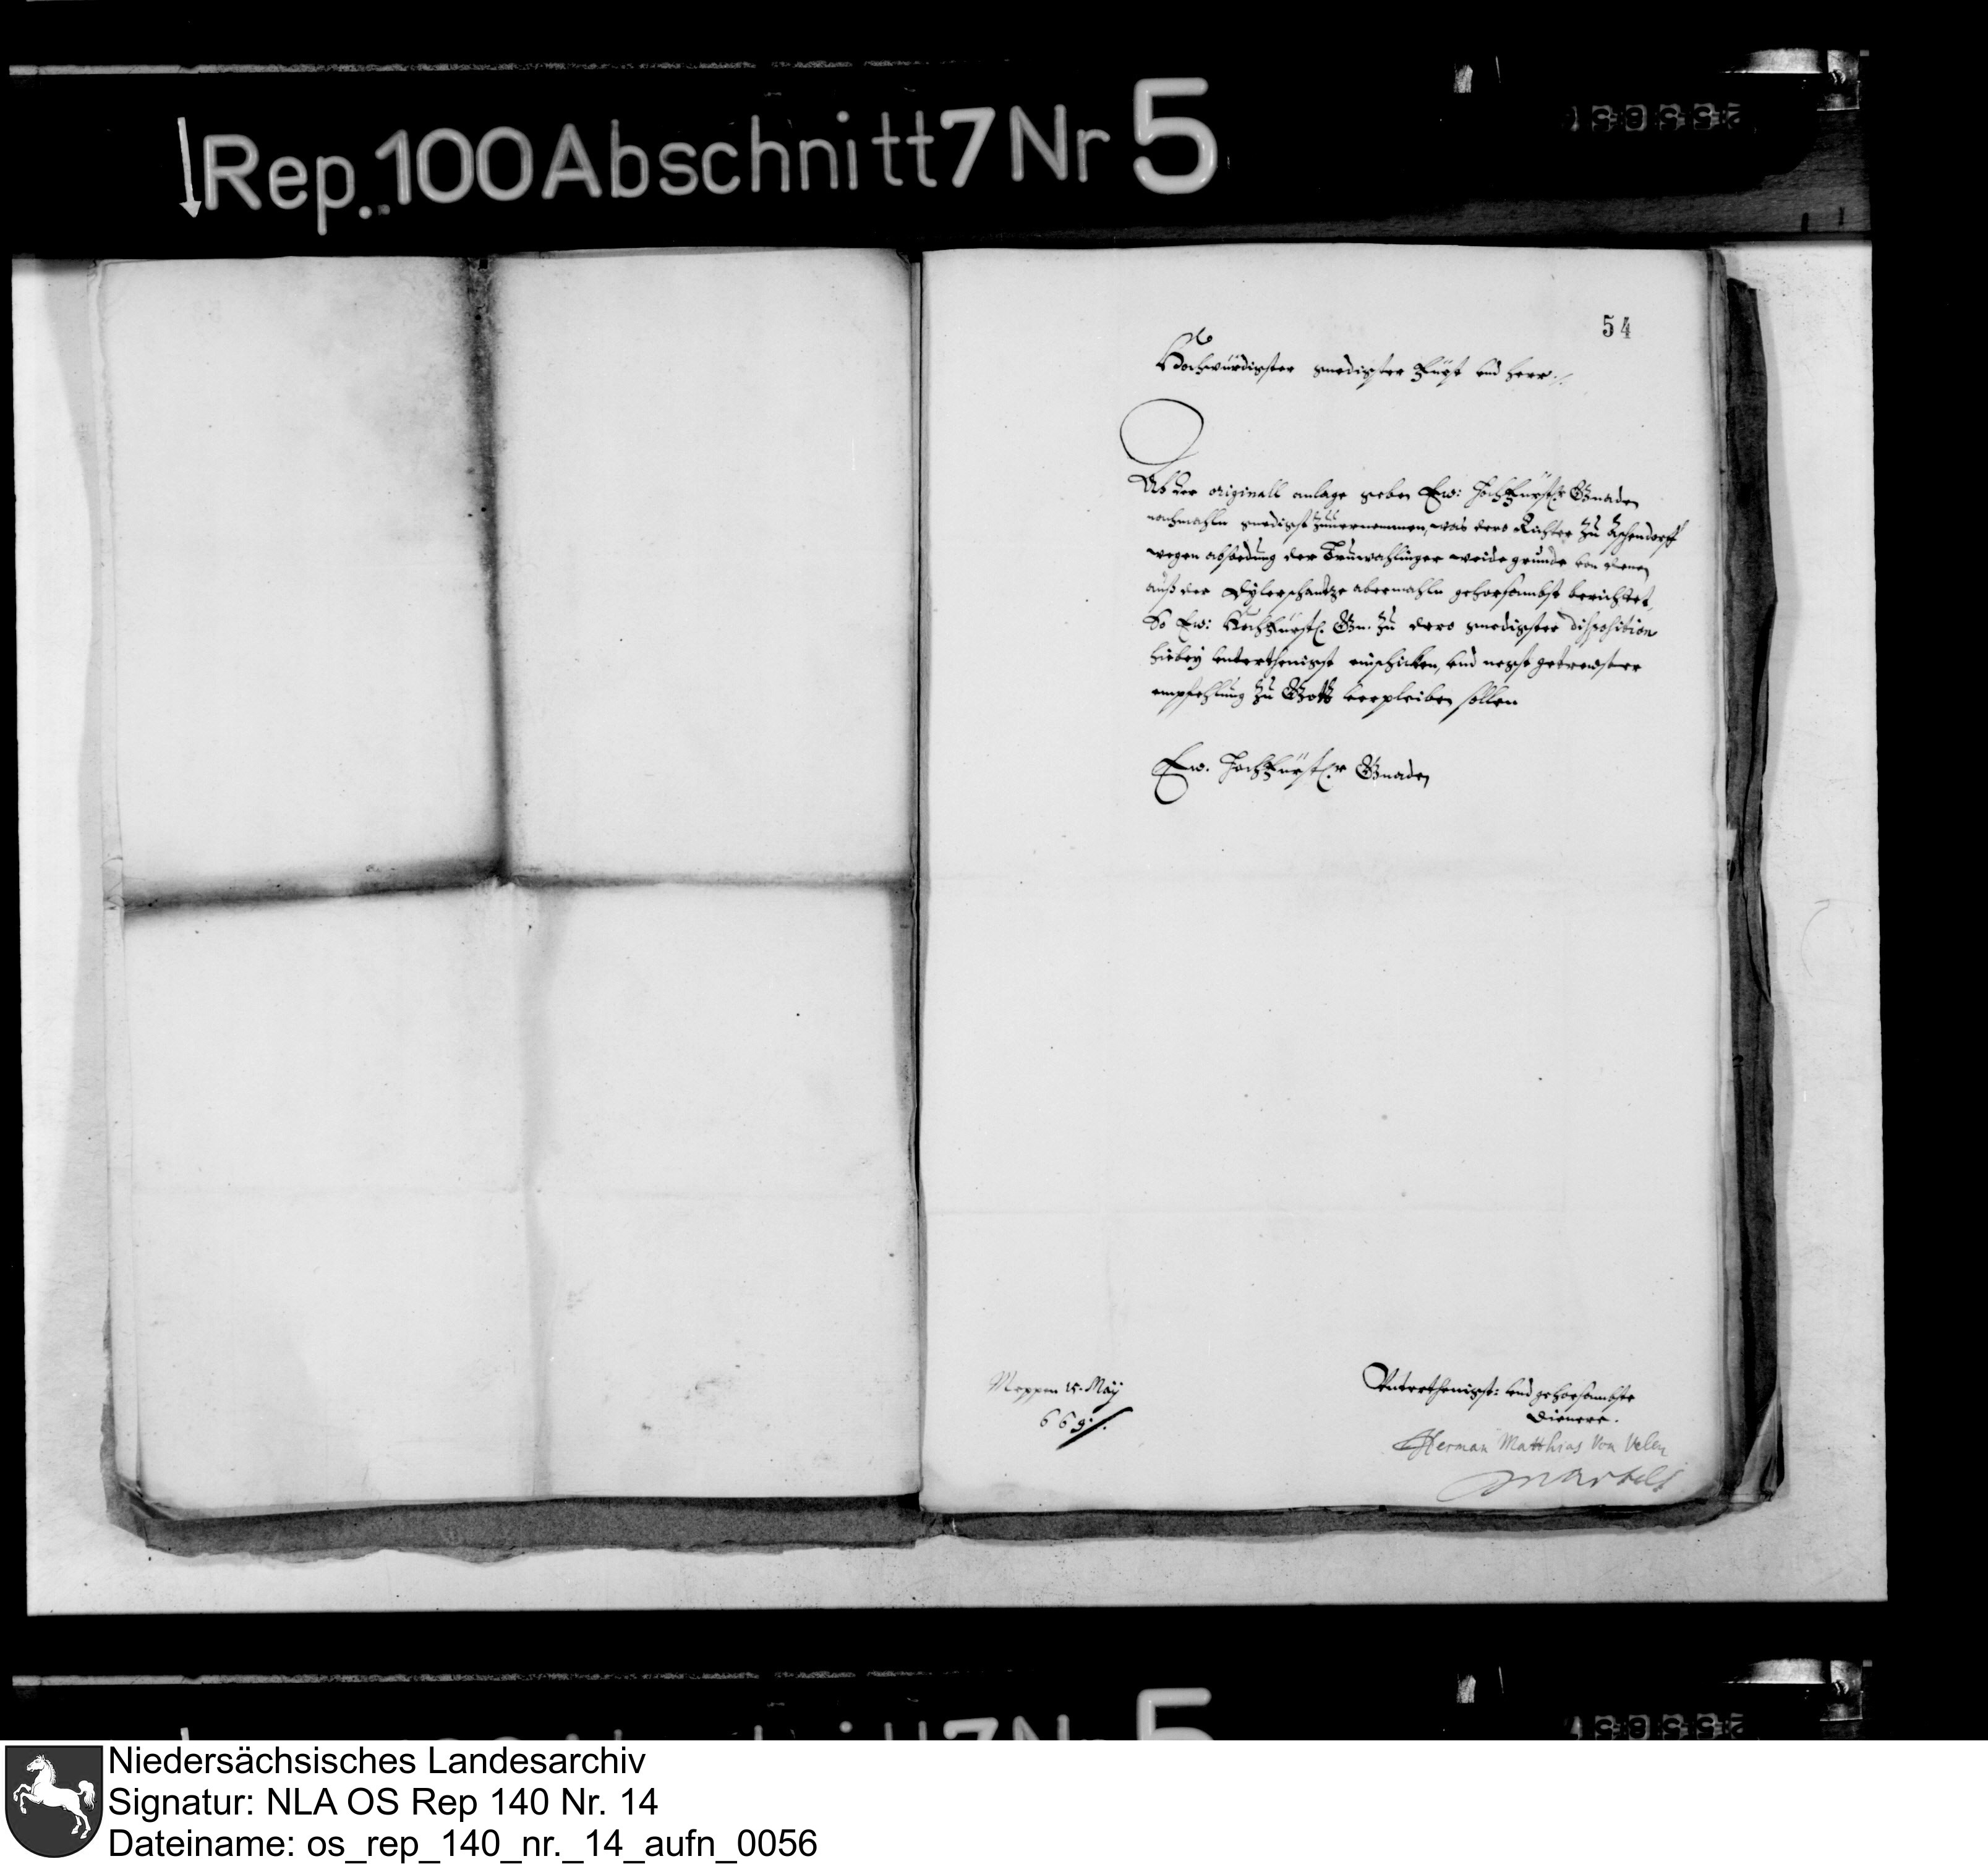 Rep. 100 Abschnitt 7 Nr 5
54
Hochwürdigster gnedigster Fürst vnd Herr
Ab der originall anlage geben Ew: Hochfürstl. Gnaden
nochmahln gnedigst zuuernemmen, was dero Richter zu Aschendorff
wegen abfredung der weidegrunde von
auß der Dylerschantze abermahln gehorsambst berichtet,
So Ew: Hochfürstl. Gn. zu dero gnedigster disposition
hiebey vnterthenigst einschicken, vnd negst getrewster
empfehlung zu Gott verpleiben sollen
Ew. Hochfürstl. Gnaden
Meppen 15. May
669
Vnterthenigst: vnd gehorsambste
Dienere.
Herman Matthias von Velen
Martels
Niedersächsisches Landesarchiv
Signatur: NLA OS Rep 140 Nr. 14
Dateiname: os_rep_140_nr._14_aufn_0056